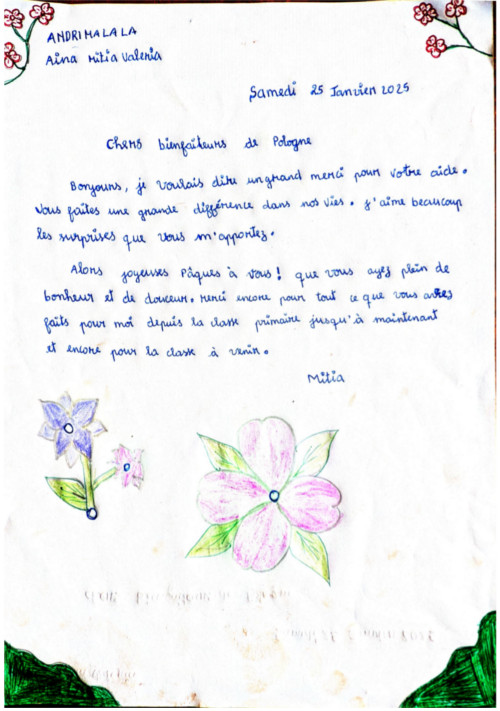 ANDRIMALALA
Aina Mitia Valeria
Samedi 25 Janvier 2025
Chers bienfaiteurs de Pologne
Bonjours, je voulais dire un grand merci pour votre aide.
Vous faites une grande différence dans nos vies. J'aime beaucoup
les surprises que vous m'apportez.
Alors joyeuses Pâques à vous! que vous ayez plein de
bonheur et de douceur. Merci encore pour tout ce que vous avez
faits pour moi depuis la classe primaire jusqu'à maintenant
et encore pour la classe à venir.
Mitia